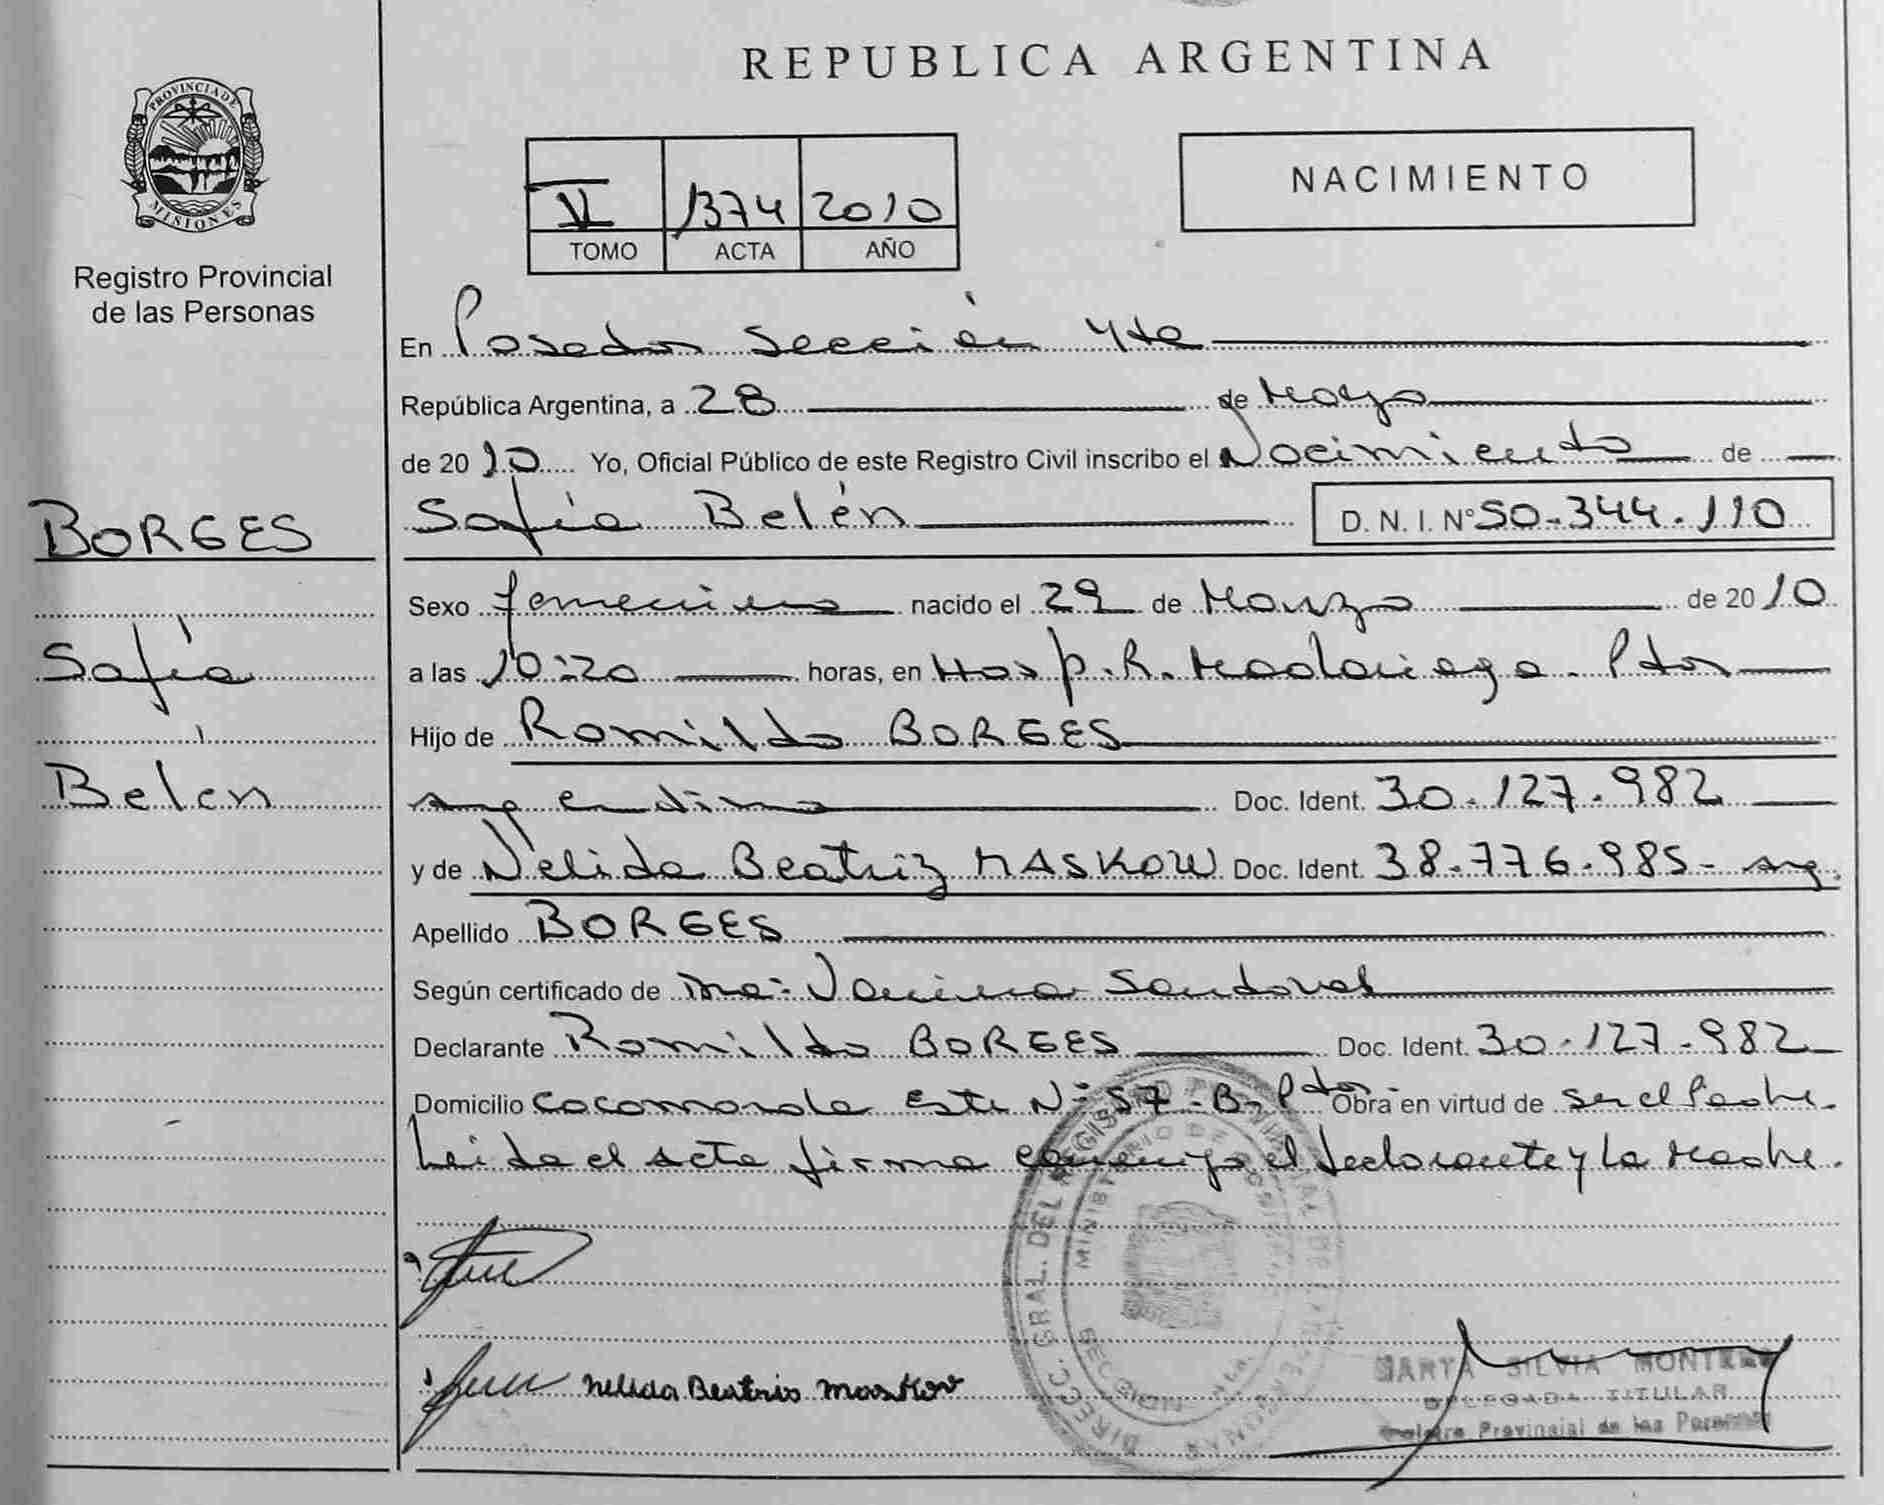 REPUBLICA ARGENTINA
PROVINCIA DE MISIONES
Registro Provincial
de las Personas
II 1374 2010
TOMO ACTA AÑO
NACIMIENTO
En Posadas Sección 4ta
República Argentina, a 28 de Mayo
de 2010 Yo, Oficial Público de este Registro Civil inscribo el Nacimiento de
BORGES
Sofía
Belén
Sofía Belén D. N. I. Nº 50.344.110
Sexo femenino nacido el 29 de Marzo de 2010
a las 10:20 horas, en Hosp. R. Madariaga. Pdas
Hijo de Romildo BORGES
argentino Doc. Ident. 30.127.982
y de Nélida Beatriz MASKOW Doc. Ident. 38.776.985 - arg.
Apellido BORGES
Según certificado de Sandoval
Declarante Romildo BORGES Doc. Ident. 30.127.982
Domicilio Cocomarola Este Nº 57 - B- Pdas Obra en virtud de ser el Padre.
Leída el acta firma conmigo el declarante y la Madre.
Nelida Beatris Maskov
DIRECC. GRAL. DEL REGISTRO PROVINCIAL DE LAS PERSONAS
MINISTERIO DE
MARTA SILVIA
DELEGADA TITULAR
Registro Provincial de las Personas